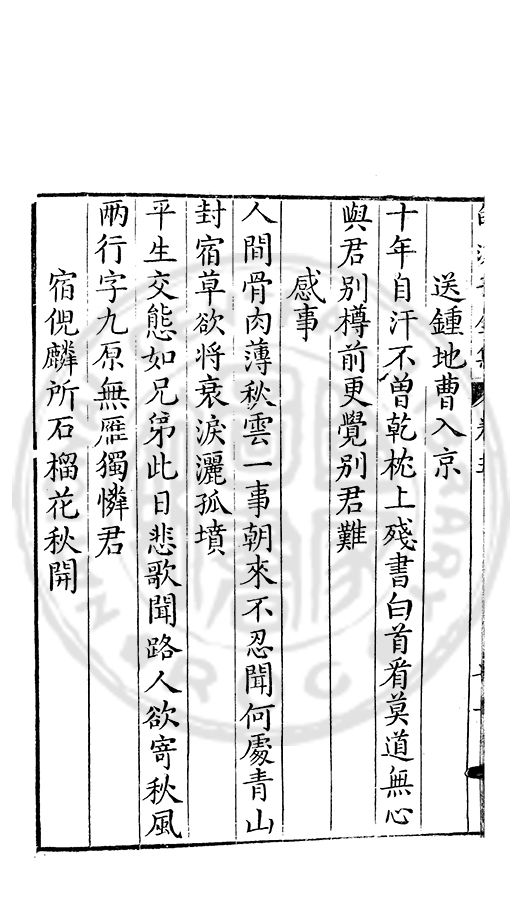 送鍾地曹入京
十年自汗不曾乾枕上殘書白首看莫道無心
與君別樽前更覺別君難
感事
人間骨肉薄秋雲一事朝來不忍聞何處青山
封宿草欲將衰淚灑孤墳
平生交態如兄弟此日悲歌聞路人欲寄秋風
兩行字九原無雁獨憐君
宿倪麟所石榴花秋開